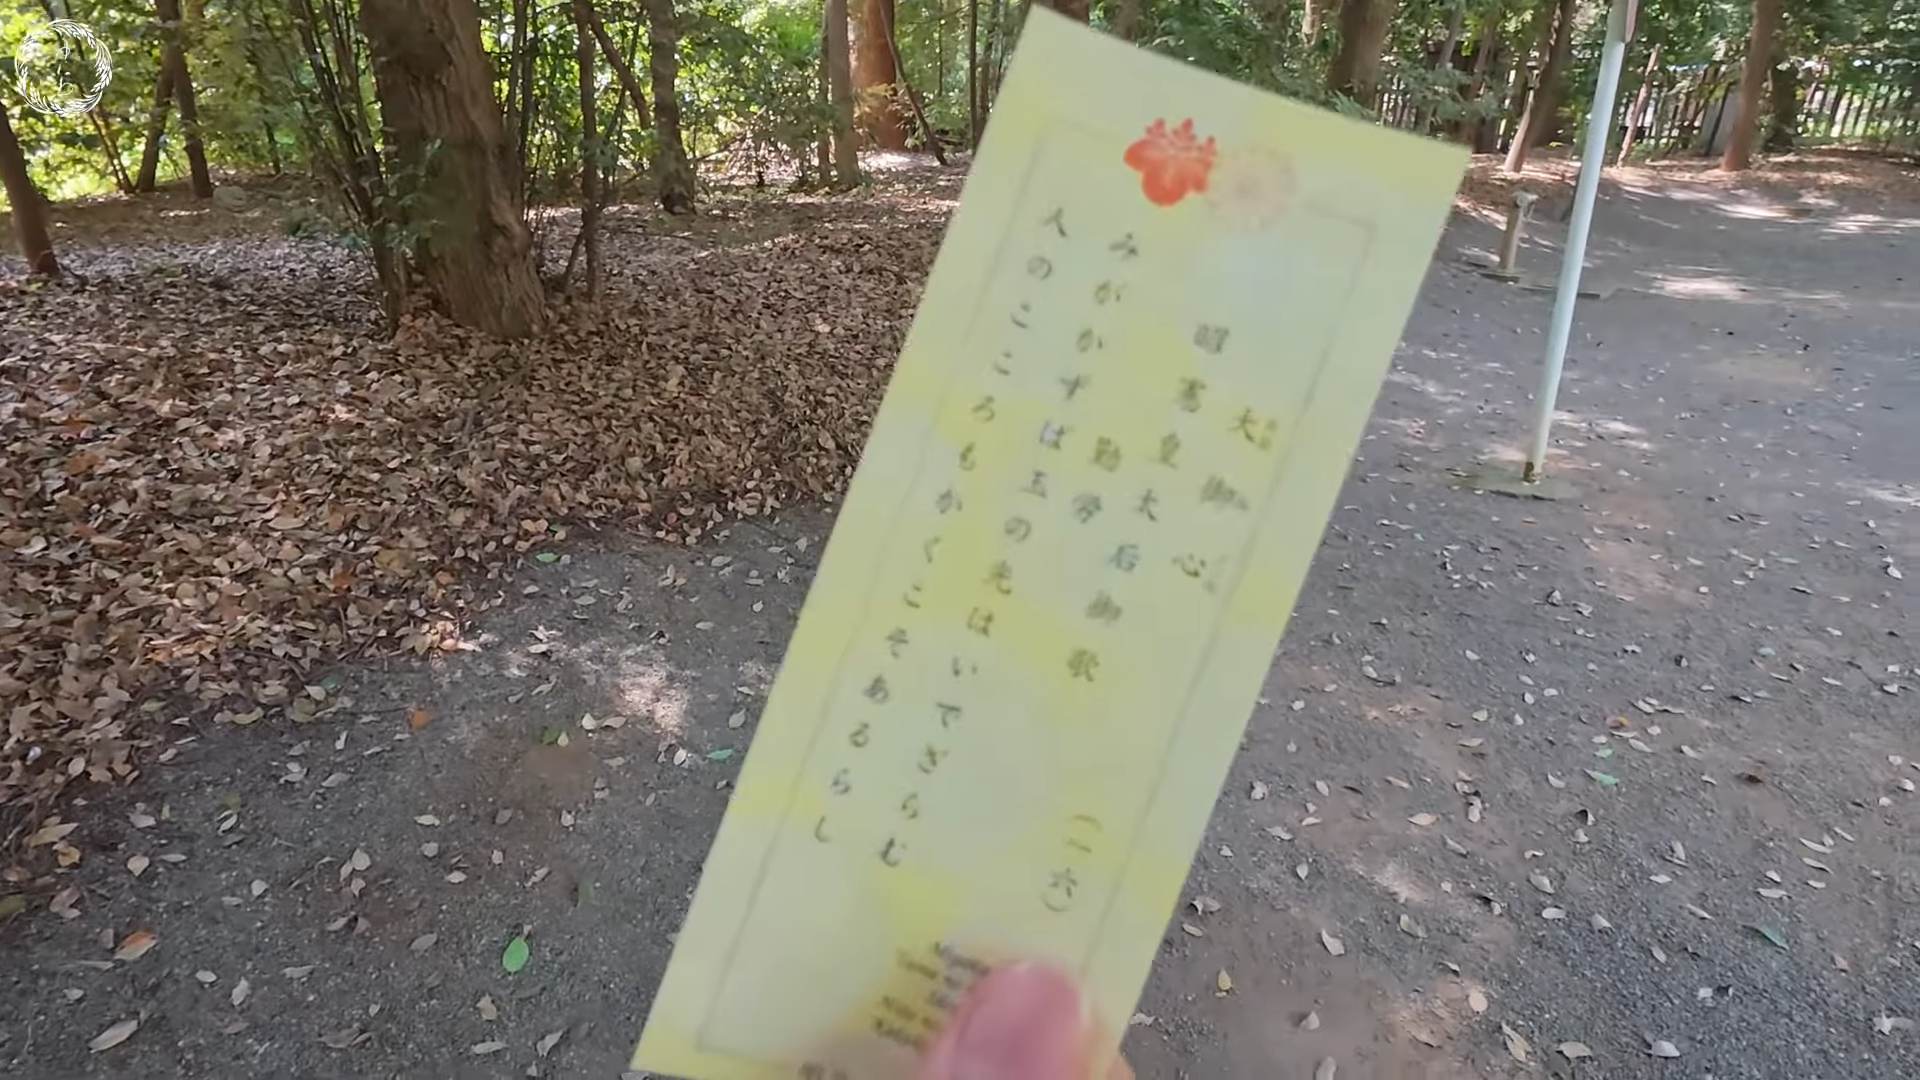 大御心
昭憲皇太后御歌
勤労
(一六)
みがかずば玉の光はいでざらむ
人のこころもかくこそあるらし